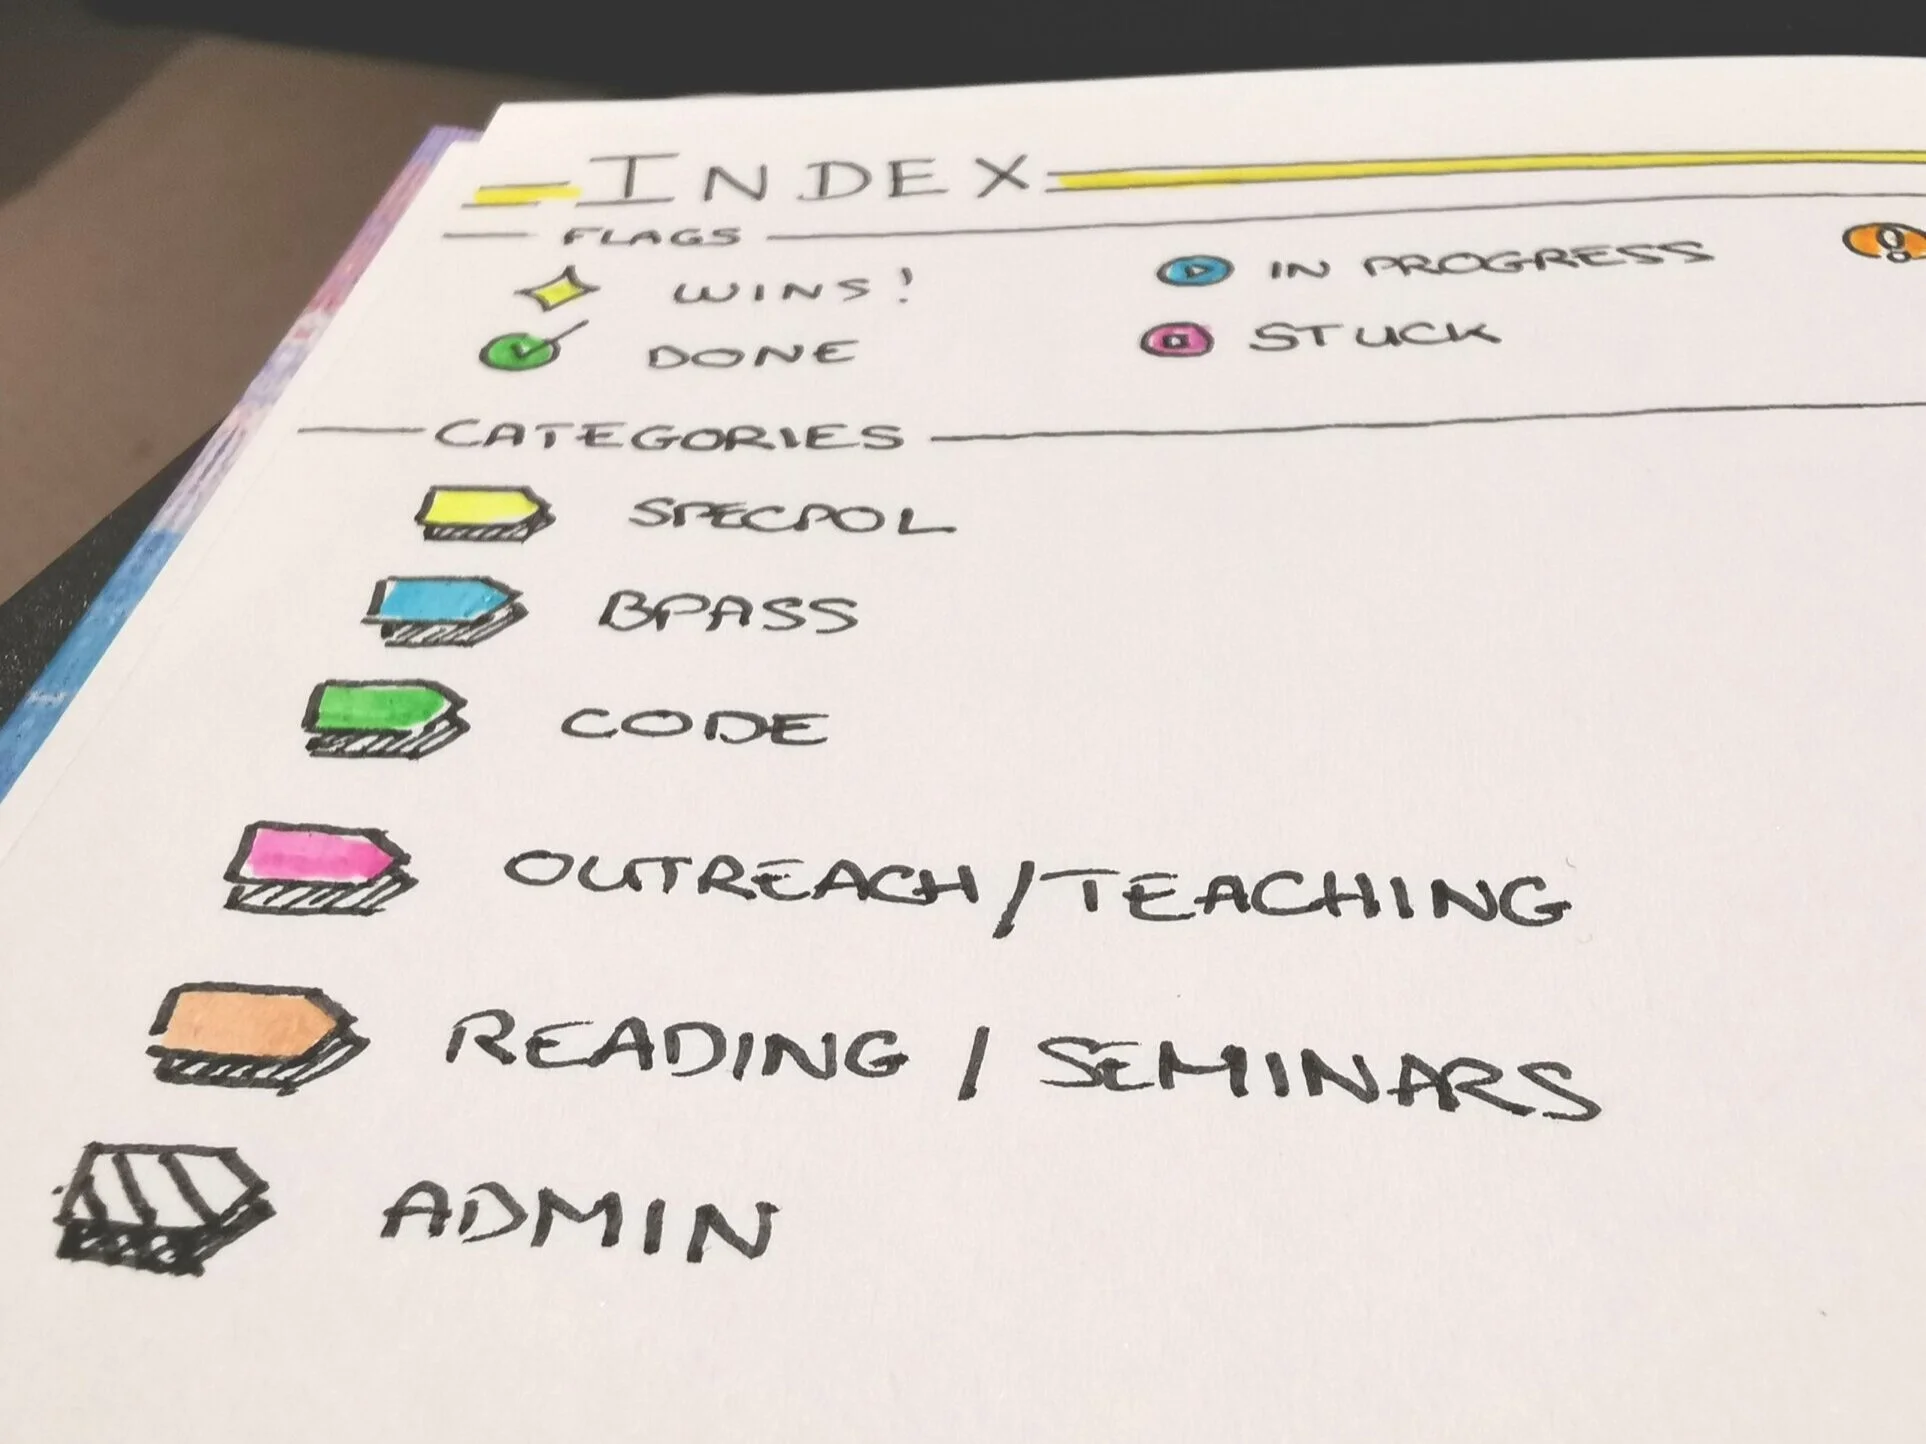 INDEX
FLAGS
WINS! IN PROGRESS
DONE STUCK
CATEGORIES
SPECPOL
BPASS
CODE
OUTREACH/TEACHING
READING / SEMINARS
ADMIN